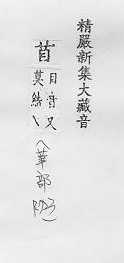 精嚴新集大藏音
苜
目音又
莫結丶
(華部